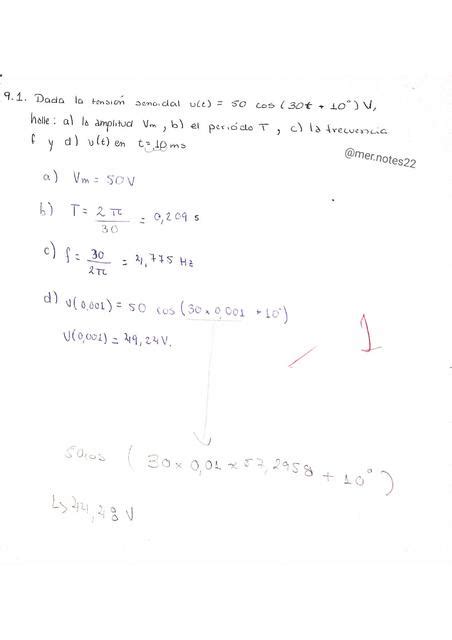 9.1. Dada la tensión senoidal v(t) = 50 cos (30t + 10°) V,
halle: a) la amplitud Vm, b) el periódo T, c) la frecuencia
f y d) v(t) en t=10 ms
@mer.notes22
a) Vm = 50V
b) T = 2π/30 = 0,209 s
c) f = 30/2π = 4,775 Hz
d) v(0,001) = 50 cos (30 x 0,001 + 10°)
v(0,001) = 49,24V.
1
50cos (30 x 0,01 x 57,2958 + 10°)
↳ 44,48 V